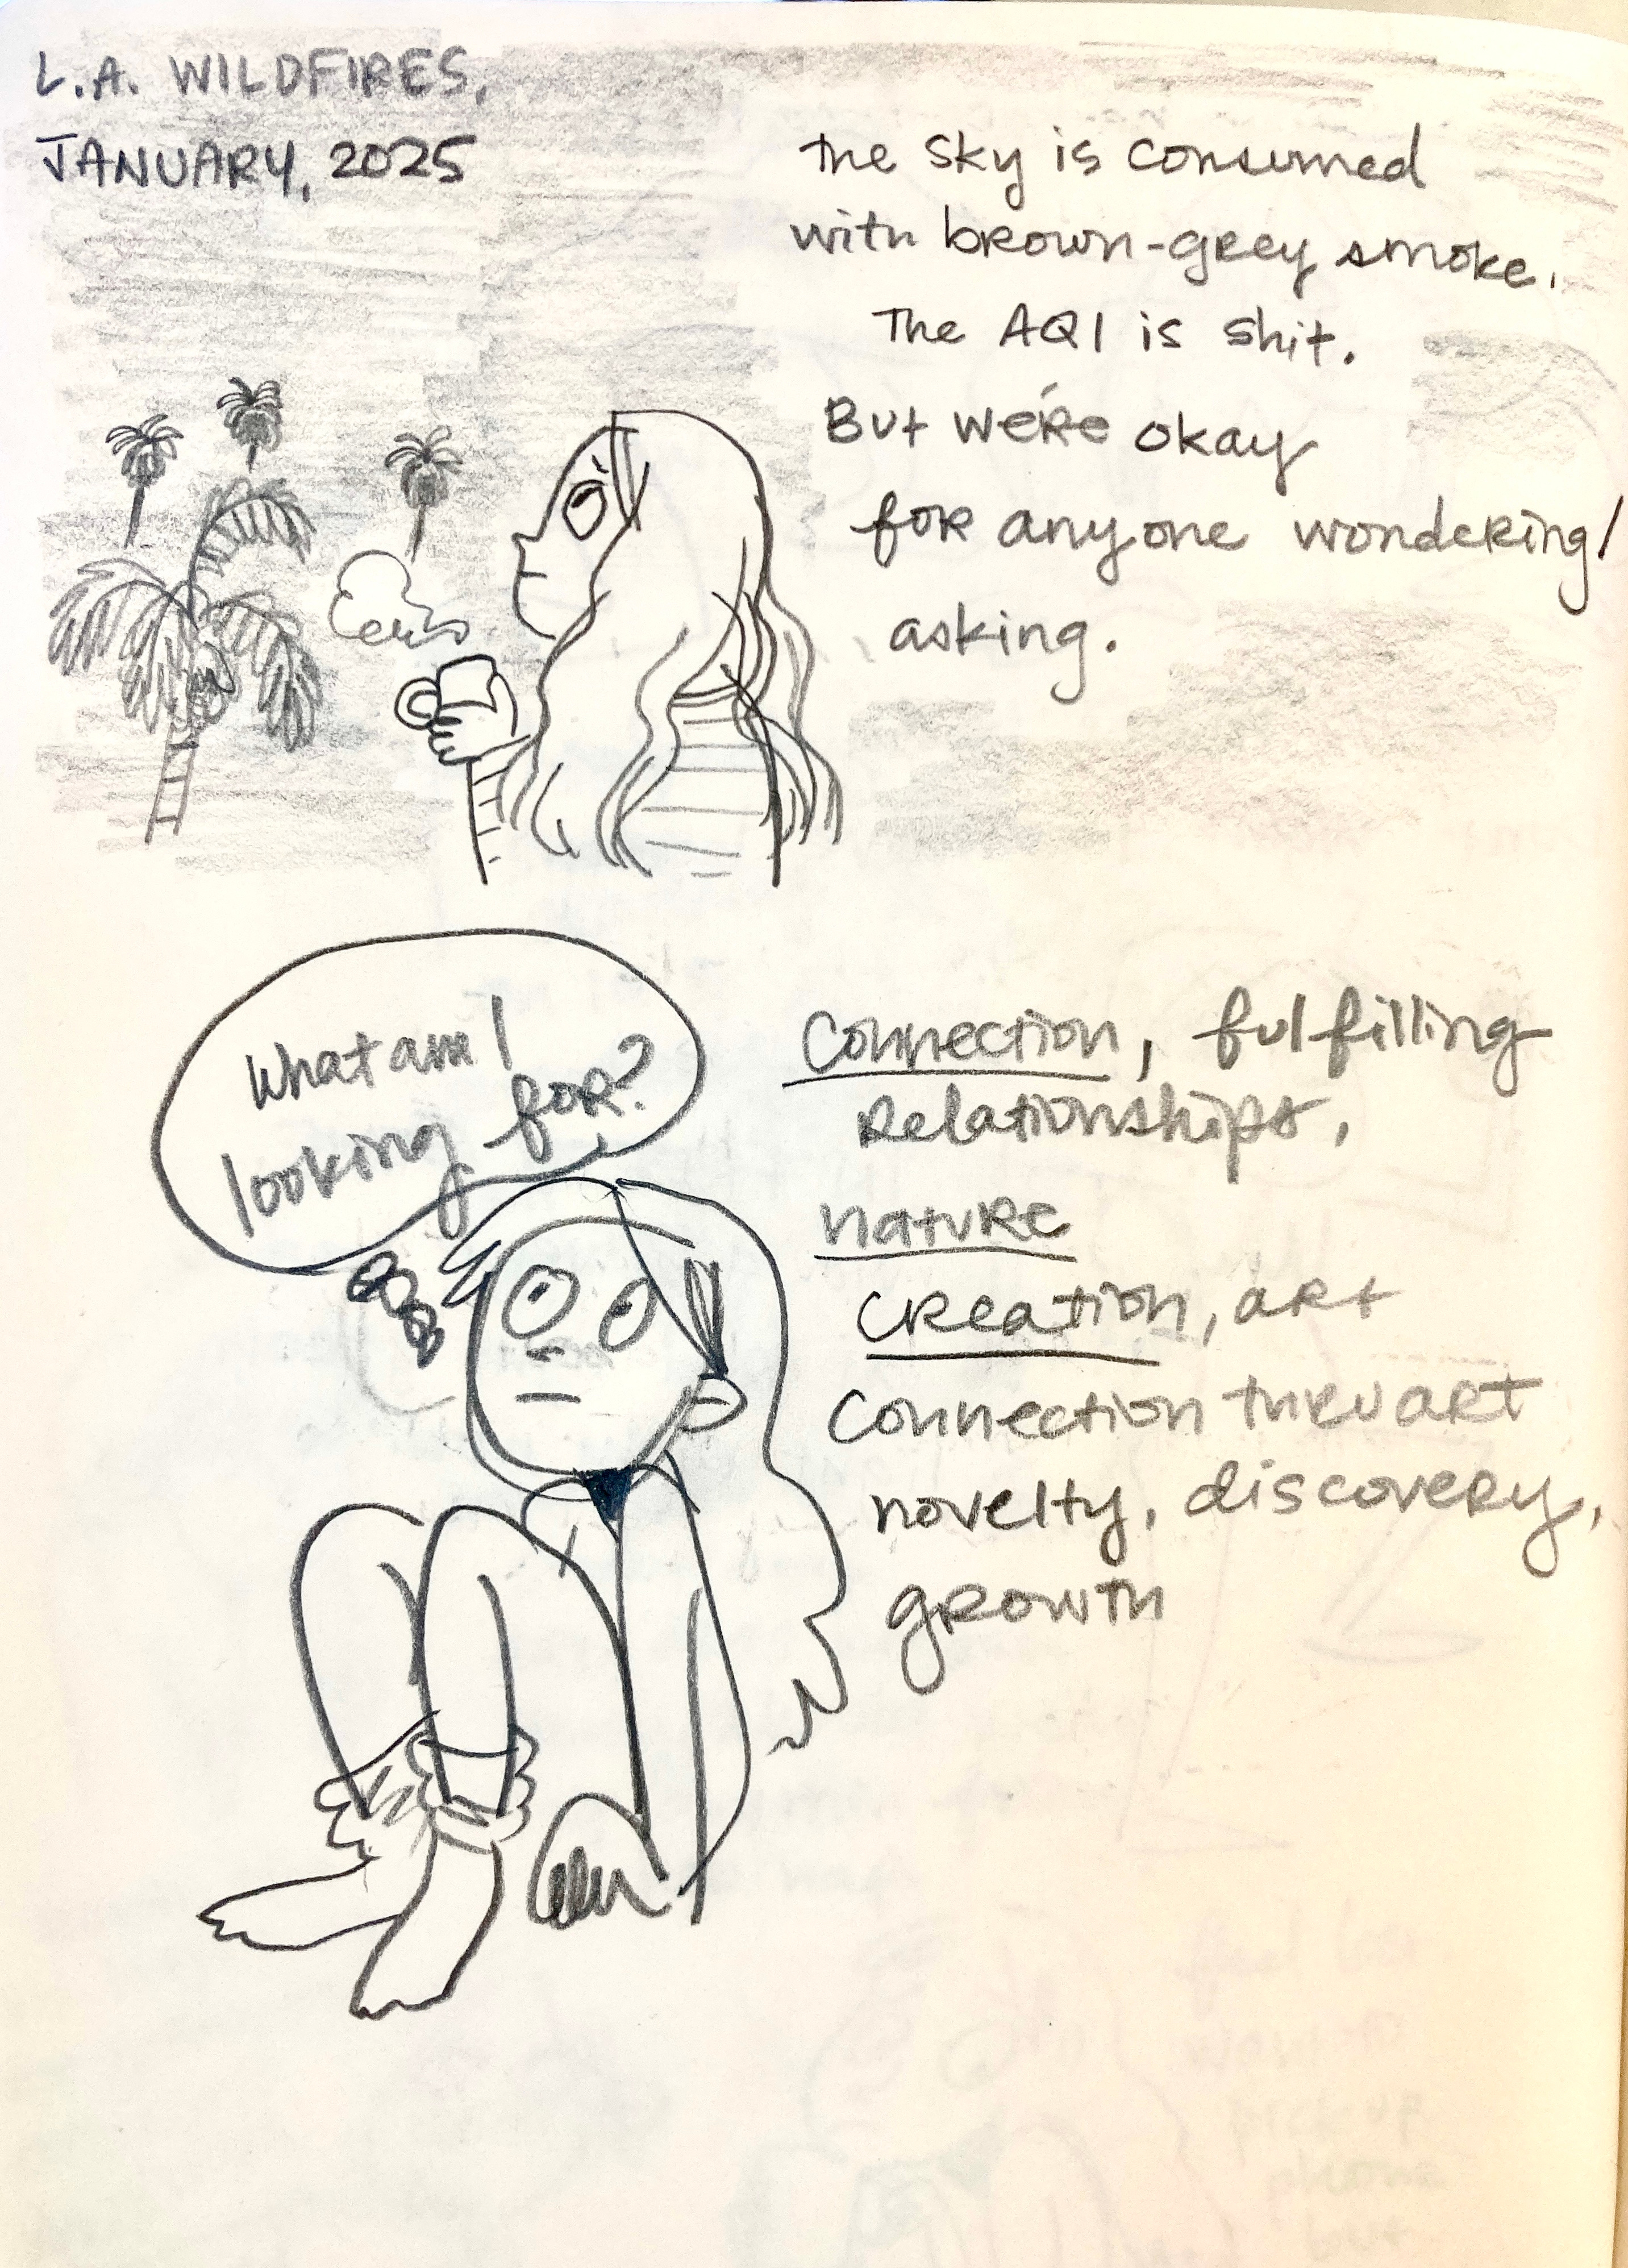 L.A. WILDFIRES,
JANUARY, 2025
the sky is consumed
with brown-grey smoke.
The AQI is shit.
But we're okay
for anyone wondering/
asking.
What am I
looking for?
Connection, fulfilling
relationships,
nature
creation, art
connection thru art
novelty, discovery,
growth